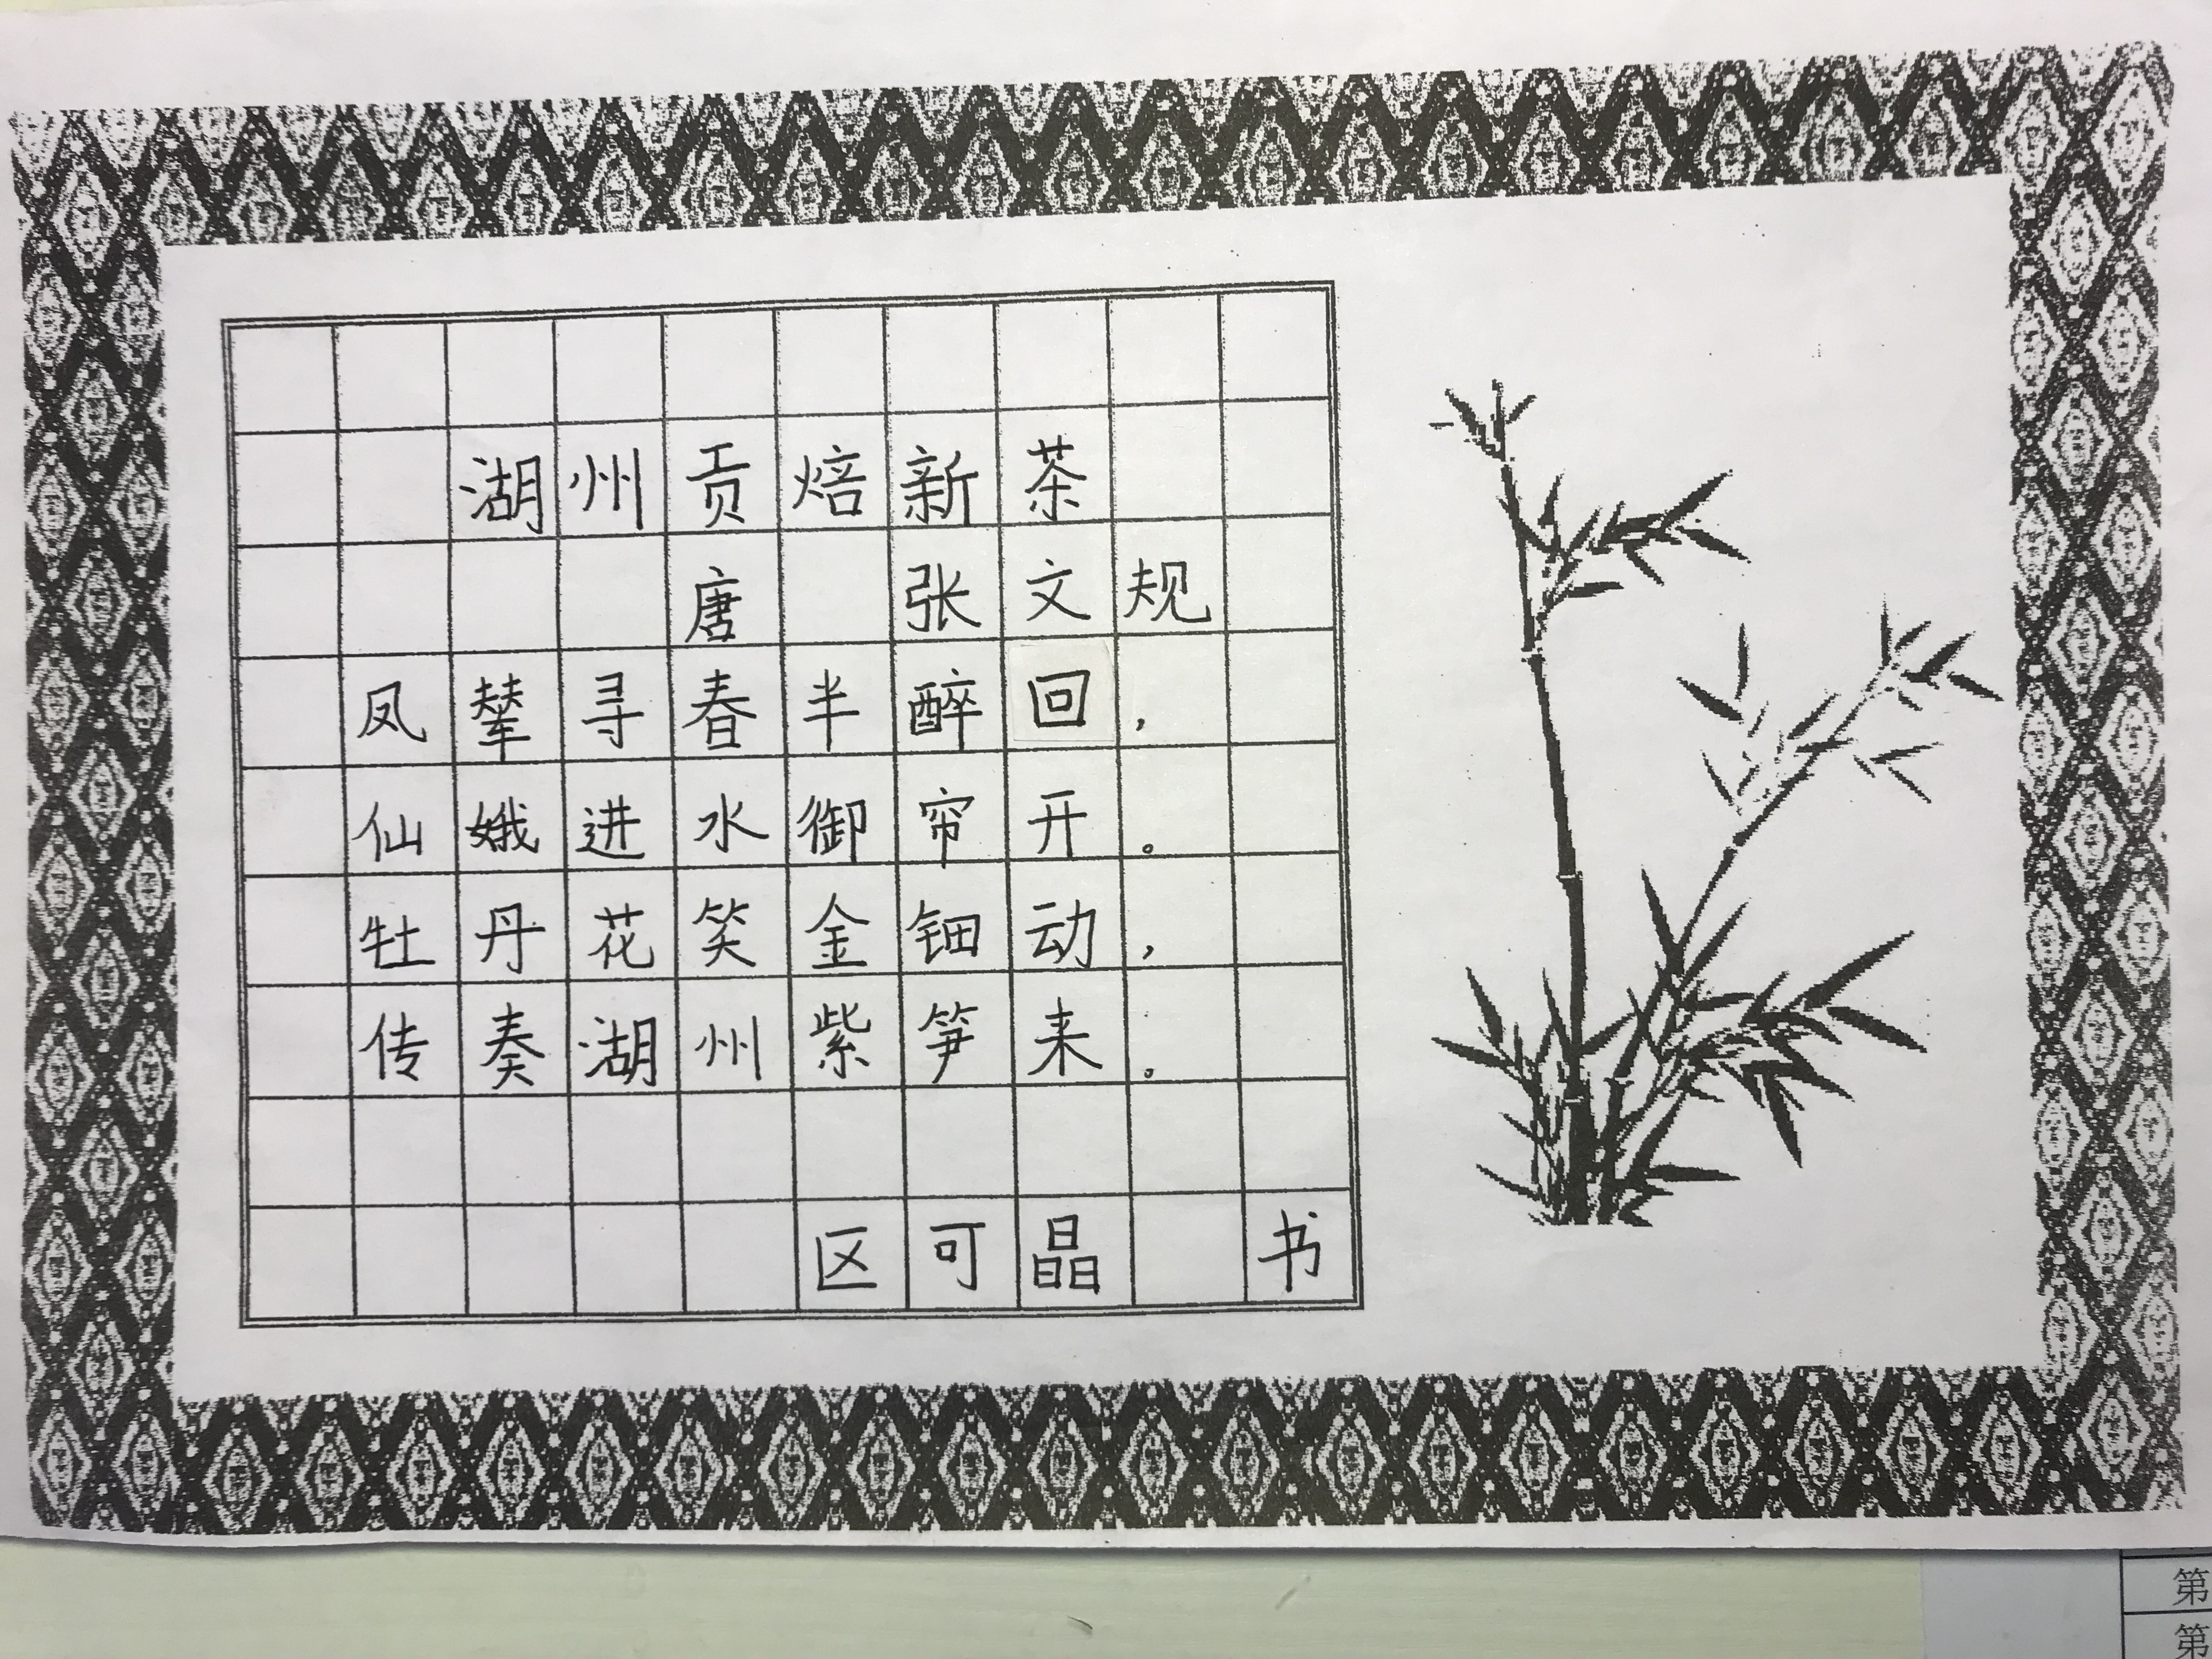 湖州贡焙新茶
唐 张文规
凤辇寻春半醉回，
仙娥进水御帘开。
牡丹花笑金钿动，
传奏湖州紫笋来。
区可晶 书
第
第